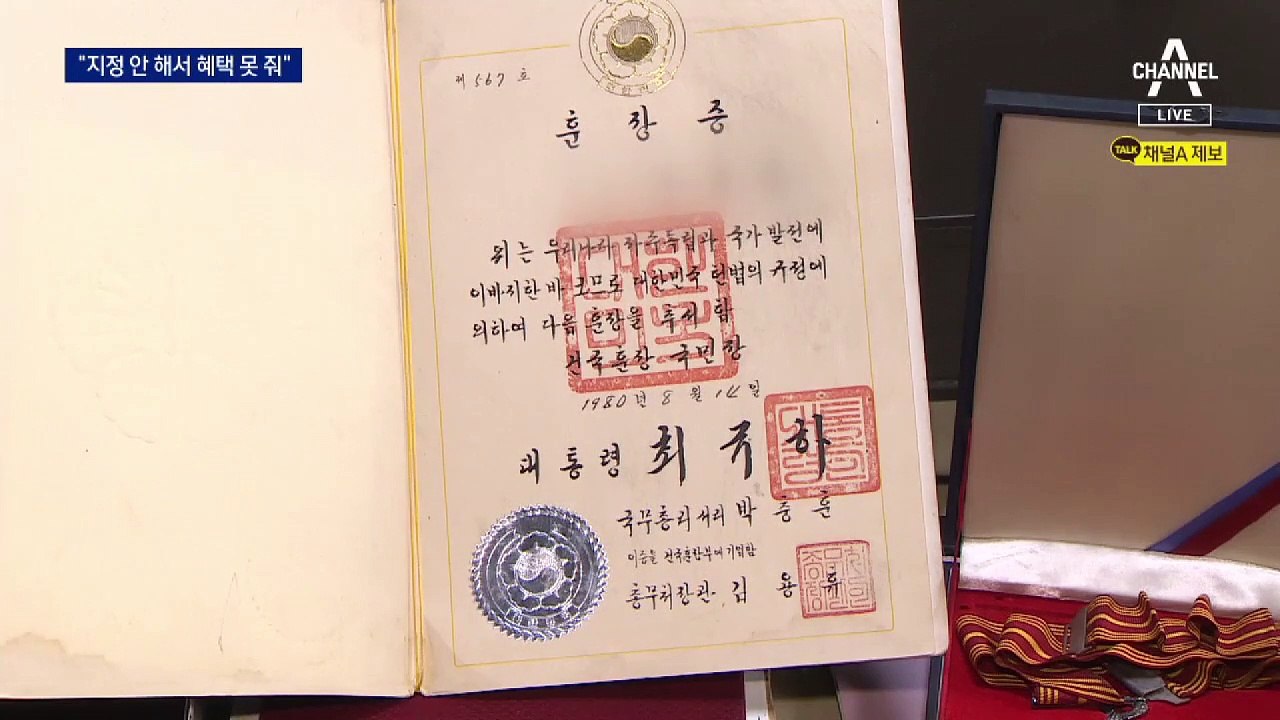 "지정 안 해서 혜택 못 줘"
CHANNEL A
LIVE
TALK 채널A 제보
제 567 호
훈장증
위는 우리나라 자주독립과 국가 발전에
이바지한 바 크므로 대한민국 헌법의 규정에
의하여 다음 훈장을 추서 함
건국훈장 국민장
1980년 8월 14일
대통령 최규하
국무총리서리 박충훈
이증을 건국훈장부에 기입함
총무처장관 김용휴